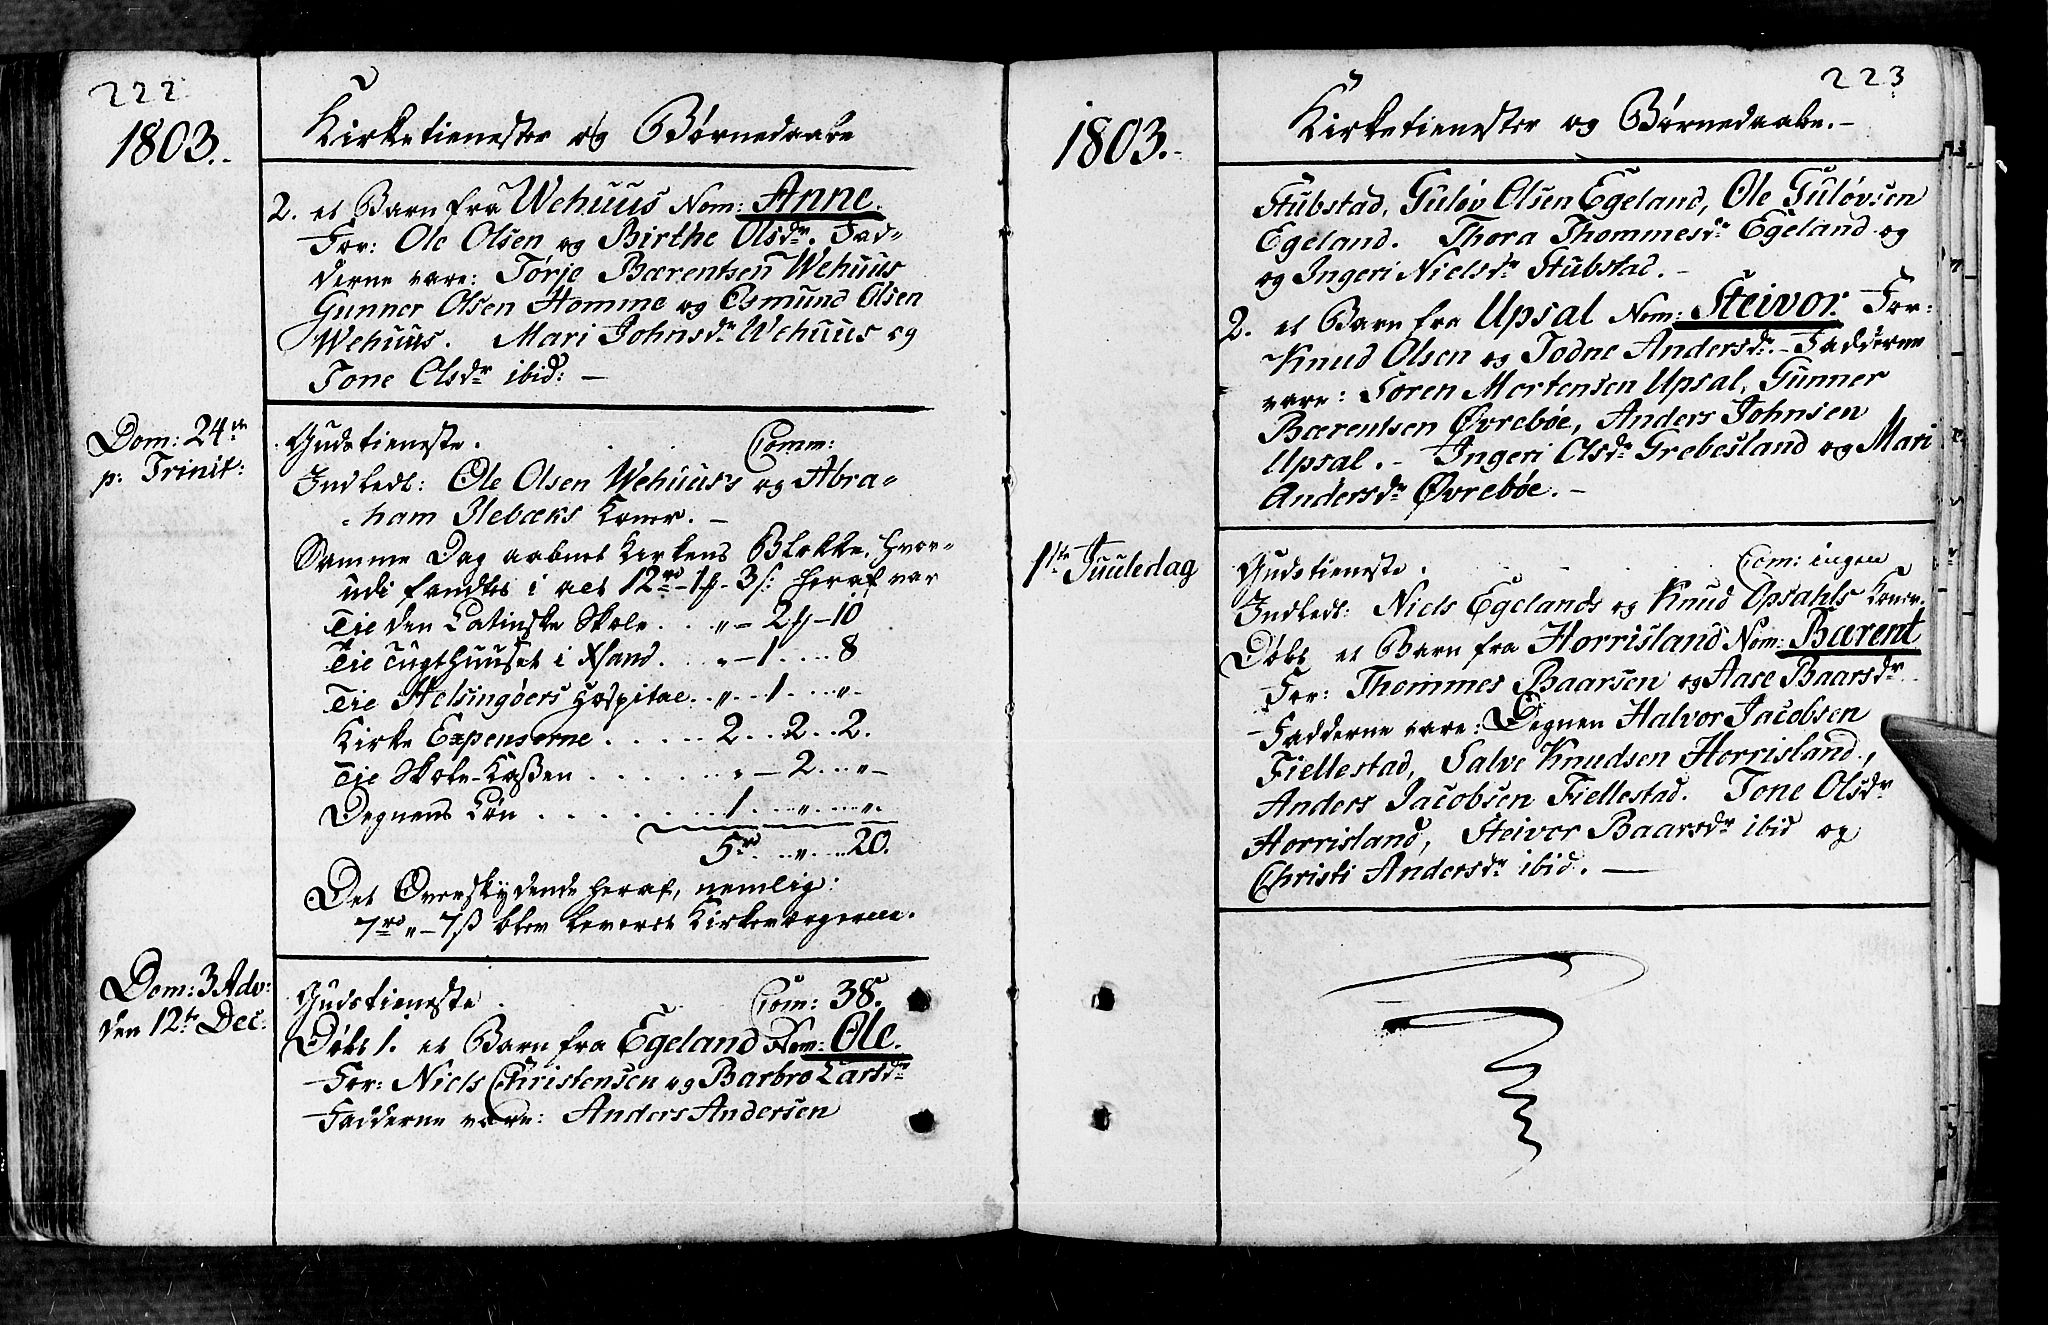 222
1803.
Kirketienester og Børnedaabe
2. et Barn fra Wehuus Nom: Anne.
For: Ole Olsen og Birthe Olsdr. Fad-
derne vare: Tørje Bærentsen Wehuus
Gunner Olsen Homme og Osmund Olsen
Wehuus. Mari Johnsdr Wehuus og
Tone Olsdr ibid: —
Dom: 24de
p: Trinit:
Gudstieneste. Comm:
Indledt: Ole Olsen Wehuus's og Abra-
ham Ilebæks Koner. —
Samme Dag aabnet Kirkens Blokke, hvor-
udi fandtes i alt 12rd - 1 - 3 s: heraf var
Til den Latinske Skole . . „ - 2 - 10
Til Tugthuuset i Xsand. . „ - 1 . . . 8
Til Helsingøers Hospital. . „ . . 1 . . . „
Kirke Expenserne . . . . . 2 . . 2 . . 2.
Til Skole-Kaßen . . . . . „ - 2 . . „ -
Degnens Løn . . . . . . . 1 . . . „ . . . „.
5rd. . . „ . . . 20.
Det Overskydende heraf, nemlig:
7rd „ - 7ß blev leveret Kirkeværgerne.
Dom: 3 Adv:
den 12te Dec:
Gudstieneste . Com: 38.
Døbt 1. et Barn fra Egeland Nom: Ole.
For: Niels Christensen og Barbro Larsdr
Fadderne vare: Anders Andersen
223
1803.-
Kirketienester og Børnedaabe. -
Stubstad, Guløv Olsen Egeland, Ole Guløvsen
Egeland. Thora Thommesdr Egeland og
og Ingeri Nielsdr Stubstad. -
2. et Barn fra Upsal Nom: Steivor. For:
Knud Olsen og Todne Andersdr. - Fadderne
vare: Søren Mortensen Upsal, Gunner
Bærentsen Øvrebøe, Anders Johnsen
Upsal. - Ingeri Olsdr Grebesland og Mari
Andersdr Øvrebøe. -
1ste Juuledag
Gudstieneste. Com: ingen
Indledt: Niels Egelands og Knud Opsahls Koner.
Døbt et Barn fra Horrisland Nom: Bærent
For: Thommes Baarsen og Aase Baarsdr
Fadderne vare: Degnen Halvor Jacobsen
Fiellestad, Salve Knudsen Horrisland,
Anders Jacobsen Fiellestad. Tone Olsdr
Horrisland, Steivor Baarsdr ibid og
Christi Andersdr ibid. —